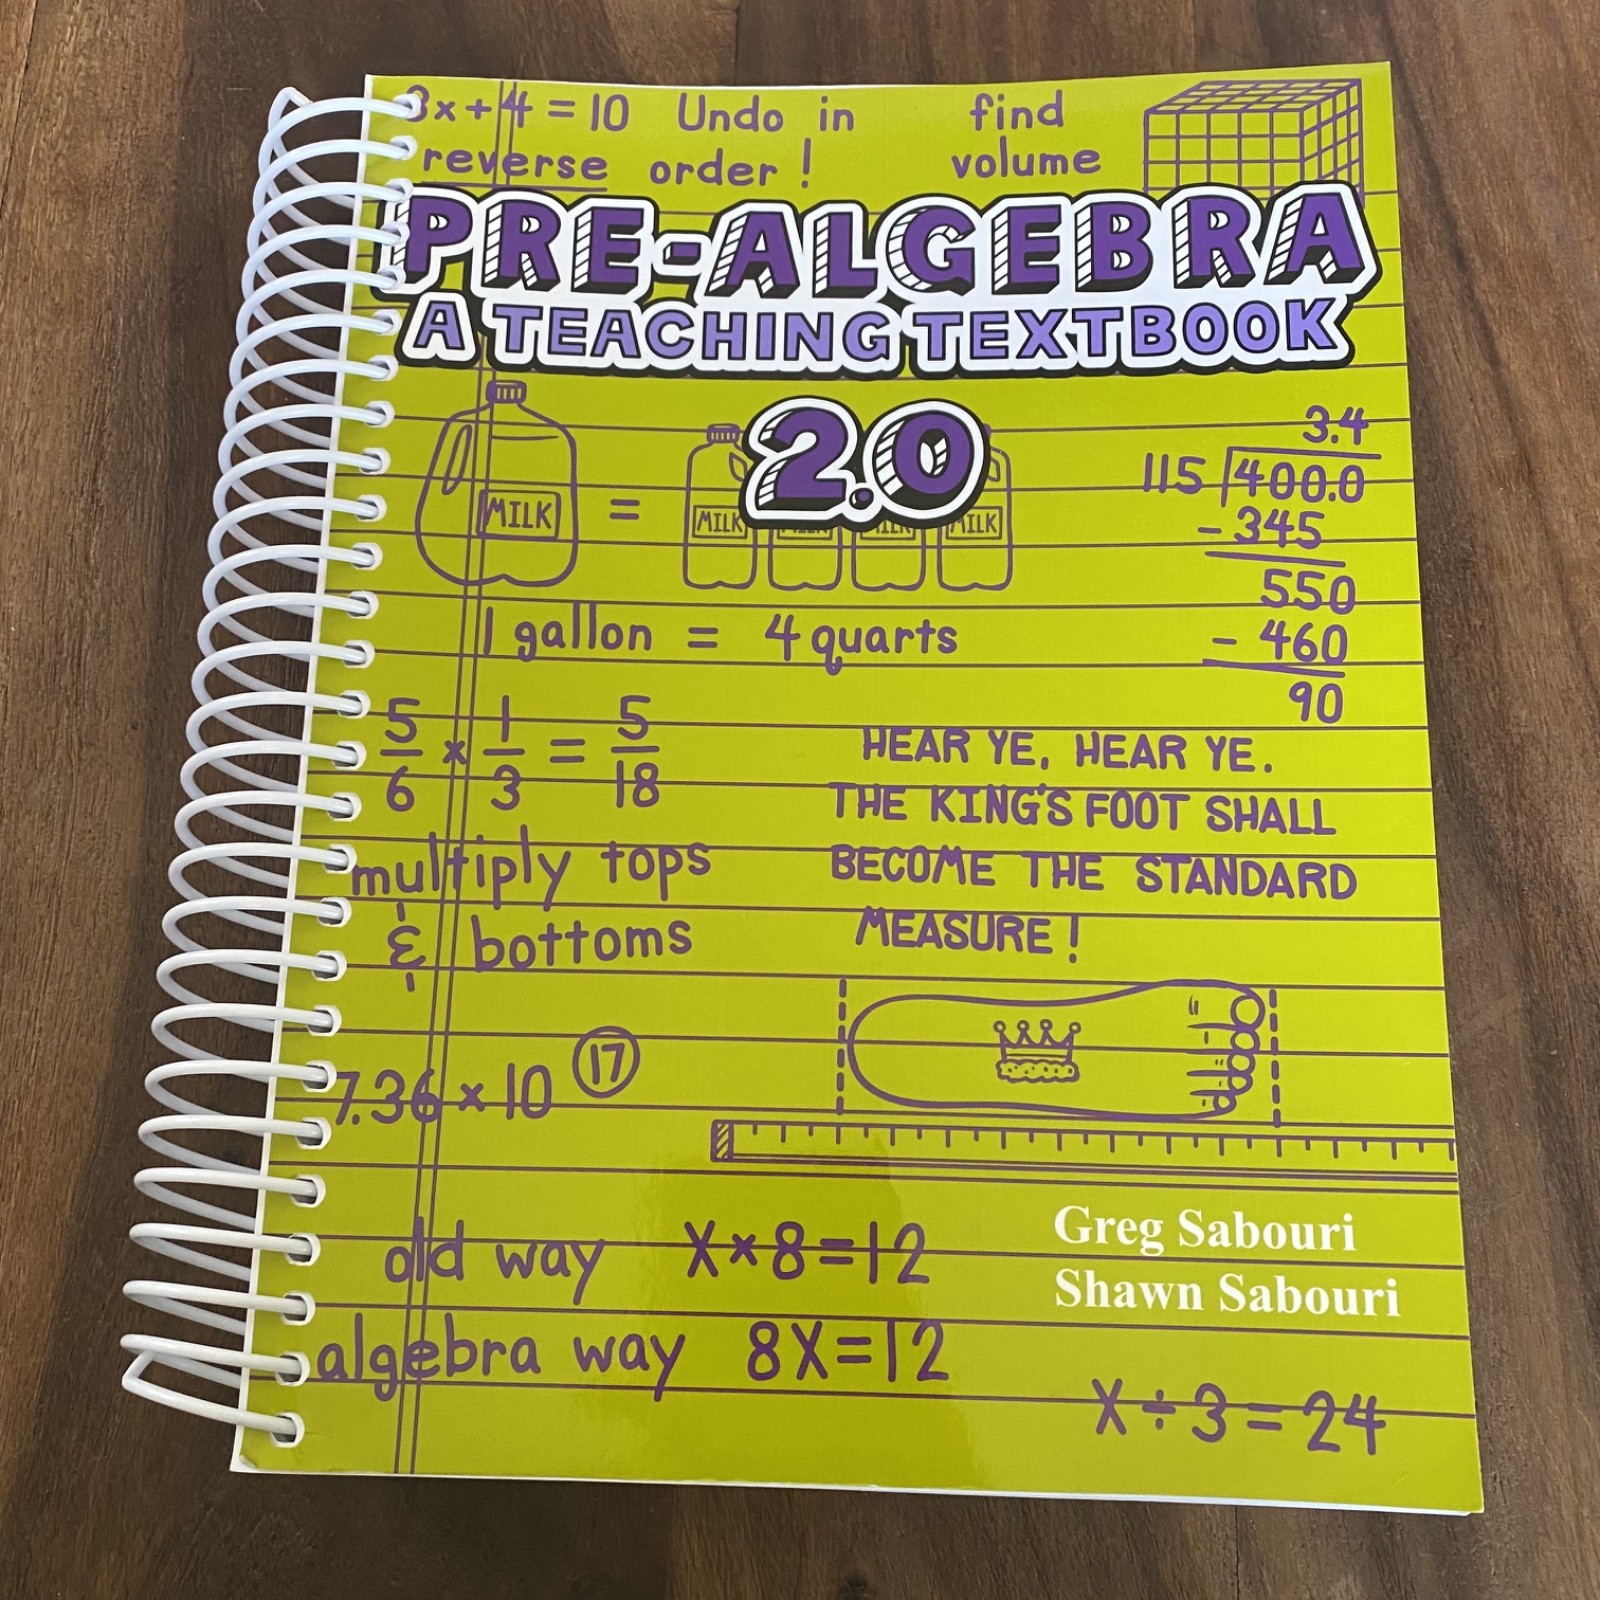 3x + 4 = 10 Undo in
reverse order!
find
volume
PRE-ALGEBRA
A TEACHING TEXTBOOK
2.0
MILK = MILK MILK MILK MILK
1 gallon = 4 quarts
3.4
115 400.0
- 345
550
- 460
90
5/6 × 1/3 = 5/18
multiply tops
& bottoms
HEAR YE, HEAR YE.
THE KING'S FOOT SHALL
BECOME THE STANDARD
MEASURE!
7.36 × 10 17
old way X × 8 = 12
algebra way 8X = 12
Greg Sabouri
Shawn Sabouri
X ÷ 3 = 24